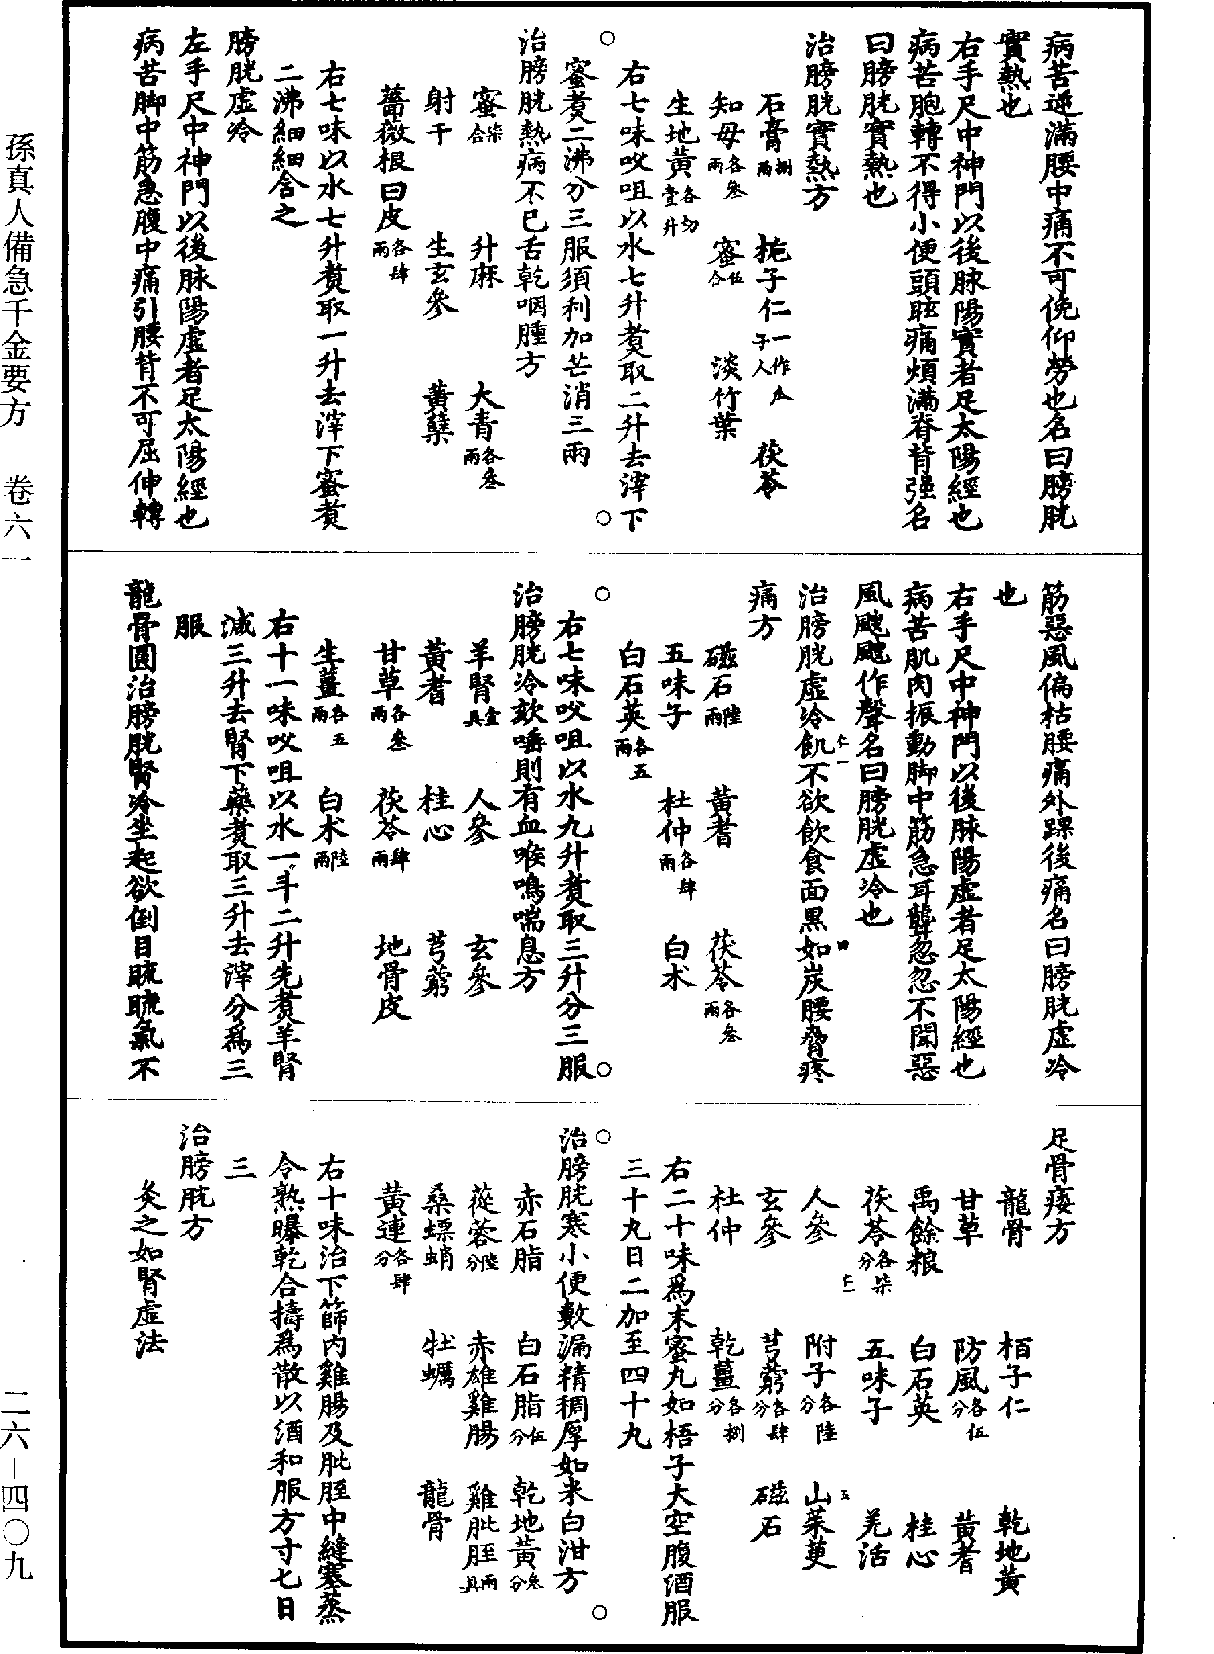 病苦逆滿腰中痛不可俛仰勞也名曰膀胱
實熱也
右手尺中神門以後脉陽實者足太陽經也
病苦胞轉不得小便頭眩痛煩滿脊背强名
曰膀胱實熱也
治膀胱實熱方
石膏捌兩 梔子仁一作瓜子人 茯苓
知母各叁兩 蜜伍合 淡竹葉
生地黄各切壹升
右七味㕮咀以水七升煑取二升去滓下
蜜煑二沸分三服須利加芒消三兩
治膀胱熱病不已舌乾咽腫方
蜜柒合 升麻 大青各叁兩
射干 生玄參 黄蘗
薔薇根曰皮各肆兩
右七味以水七升煑取一升去滓下蜜煑
二沸細細含之
膀胱虛冷
左手尺中神門以後脉陽虛者足太陽經也
病苦脚中筋急腹中痛引腰背不可屈伸轉
筋惡風偏枯腰痛外踝後痛名曰膀胱虛冷
也
右手尺中神門以後脉陽虛者足太陽經也
病苦肌肉振動脚中筋急耳聾忽忽不聞惡
風颼颼作聲名曰膀胱虛冷也
治膀胱虛冷飢不欲飲食面黑如炭腰脅疼
痛方
磁石陸兩 黄耆 茯苓各叁兩
五味子 杜仲各肆兩 白术
白石英各五兩
右七味㕮咀以水九升煑取三升分三服
治膀胱冷欬唾則有血喉鳴喘息方
羊腎壹具 人參 玄參
黄耆 桂心 芎藭
甘草各叁兩 茯苓肆兩 地骨皮
生薑各五兩 白术陸兩
右十一味㕮咀以水一斗二升先煑羊腎
減三升去腎下藥煑取三升去滓分爲三
服
龍骨圓治膀胱腎冷坐起欲倒目䀮䀮氣不
足骨痿方
龍骨 栢子仁 乾地黄
甘草 防風各伍分 黄耆
禹餘粮 白石英 桂心
茯苓各柒分 五味子 羌活
人參 附子各陸分 山茱萸
玄參 芎藭各肆分 磁石
杜仲 乾薑各捌分
右二十味爲末蜜丸如梧子大空腹酒服
三十丸日二加至四十丸
治膀胱寒小便數漏精稠厚如米白泔方
赤石脂 白石脂伍分 乾地黄叁分
蓯蓉陸分 赤雄雞腸 雞肶胵兩具
桑螵蛸 牡蠣 龍骨
黄連各肆分
右十味治下篩內雞腸及肶胵中縫塞蒸
令熟曝乾合擣爲散以酒和服方寸匕日
三
治膀胱方
灸之如腎虛法
孫真人備急千金要方 卷六一
二六—四〇九